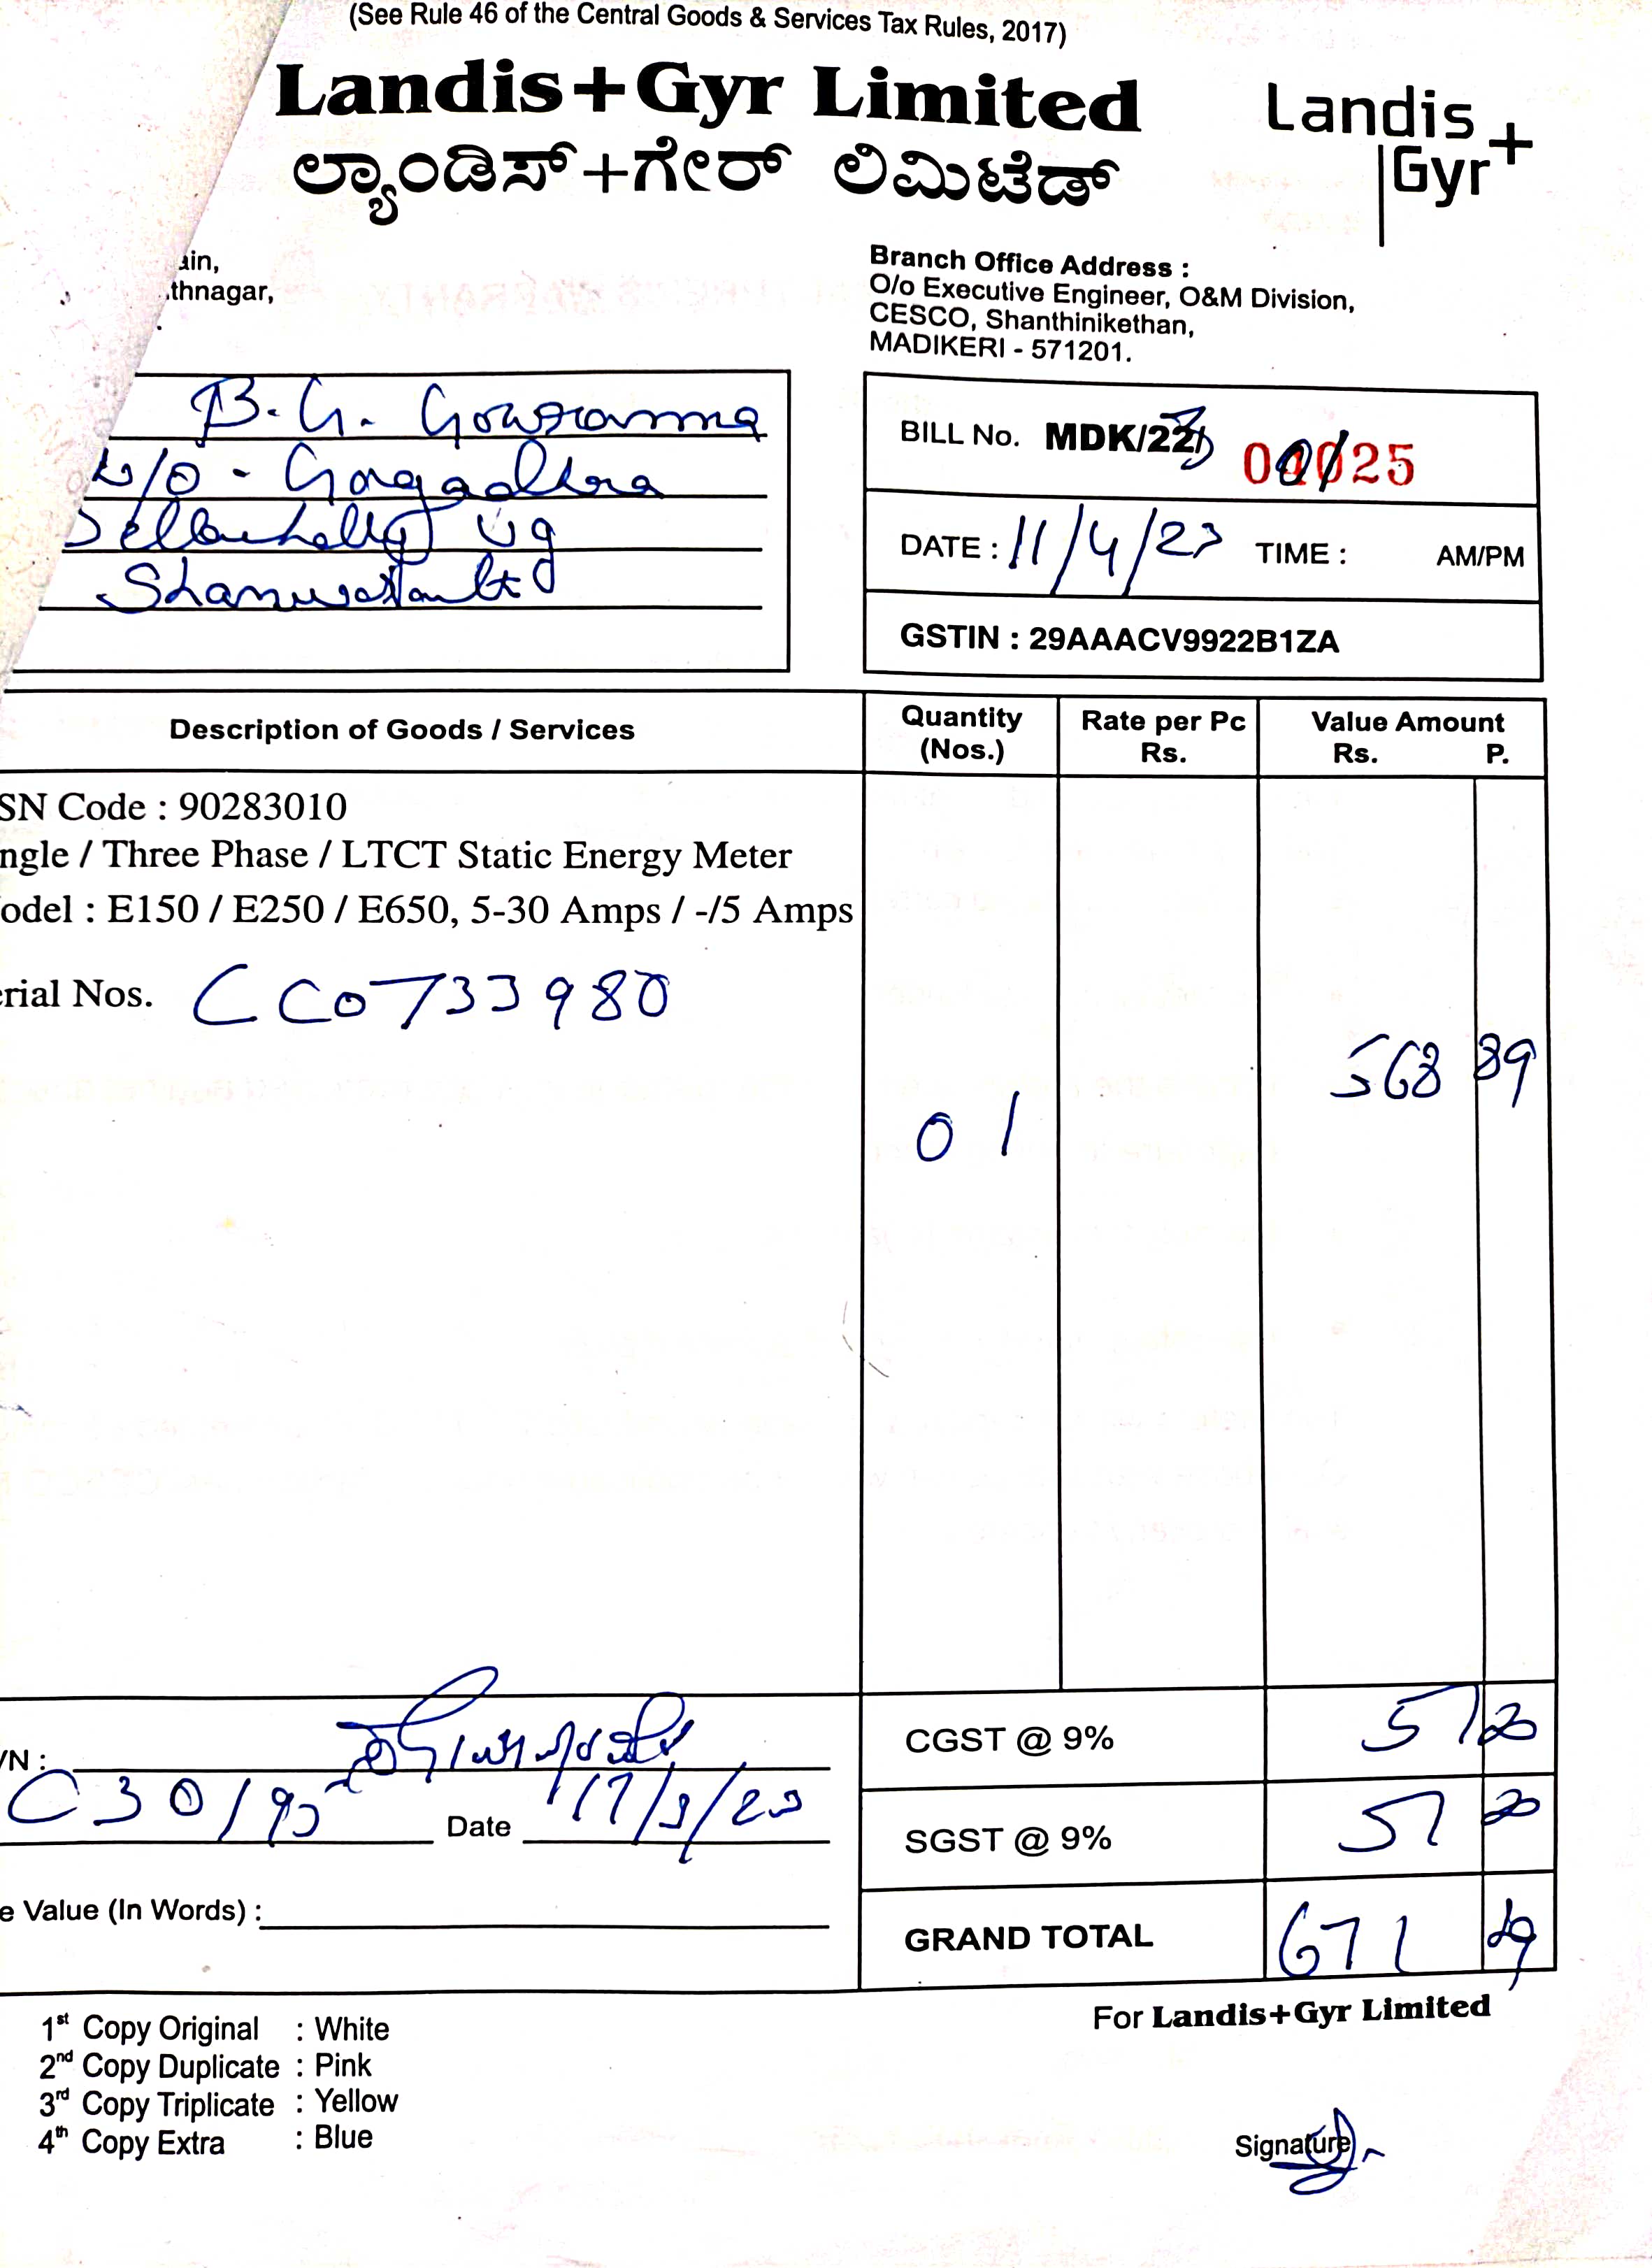 (See Rule 46 of the Central Goods & Services Tax Rules, 2017)
Landis+Gyr Limited
ಲ್ಯಾಂಡಿಸ್+ಗೇರ್ ಲಿಮಿಟೆಡ್
Landis
Gyr+
ain,
thnagar,
Branch Office Address :
O/o Executive Engineer, O&M Division,
CESCO, Shanthinikethan,
MADIKERI - 571201.
B. G. Gowramma
W/O - Gangadhra
Shanuvarsanthe
BILL No. MDK/22 25
DATE : 11/4/23 TIME : AM/PM
GSTIN : 29AAACV9922B1ZA
Description of Goods / Services
Quantity (Nos.)
Rate per Pc Rs.
Value Amount Rs. P.
SN Code : 90283010
ngle / Three Phase / LTCT Static Energy Meter
odel : E150 / E250 / E650, 5-30 Amps / -/5 Amps
erial Nos. CC0733980
568 89
01
/N :
CGST @ 9% 51 20
Date 17/3/23
SGST @ 9% 51 20
e Value (In Words) :
GRAND TOTAL 671 29
1st Copy Original : White
2nd Copy Duplicate : Pink
3rd Copy Triplicate : Yellow
4th Copy Extra : Blue
For Landis+Gyr Limited
Signature